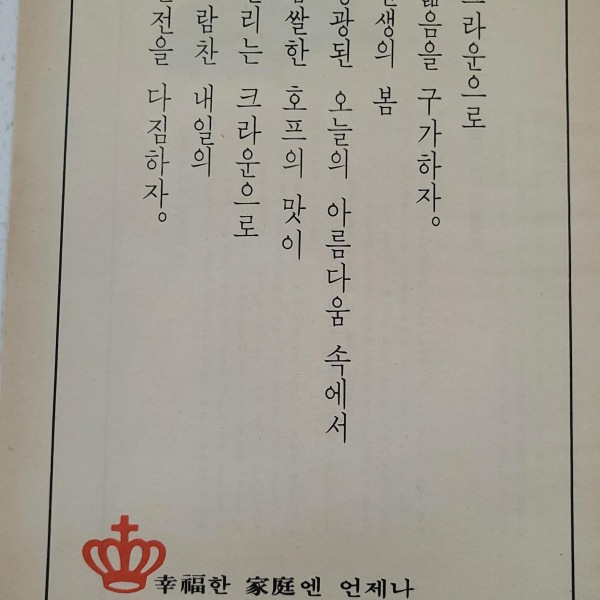 크라운으로
젊음을 구가하자。
인생의 봄
영광된 오늘의 아름다움 속에서
쌉쌀한 호프의 맛이
크라운으로
람찬 내일의
전을 다짐하자。
幸福한 家庭엔 언제나